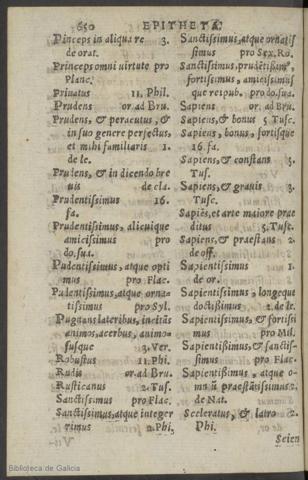 650 EPITHETA.
Pinceps in aliqua re 3.
de orat.
Princeps omni virtute pro
Planc.
Priuatus 11. Phil.
Prudens or. ad Bru.
Prudens, & peracutus, &
in suo genere perfectus,
et mihi familiaris 1.
de le.
Prudens, & in dicendo bre
uis de cla.
Prudentissimus 16.
fa.
Prudentissimus, alicuique
amicissimus pro
do. sua.
Pudentissimus, atque opti
mus pro Flac.
Pudentissimus, atque orna-
tissimus pro Syl.
Pugnans lateribus, inctiās
animos, acerbus, animo-
susque 3. Ver.
Robustus 11. Phi.
Rudis or. ad Bru.
Rusticanus 2. Tus.
Sanctissimus pro Flac.
Sanctissimus, atque integer
rimus 2. Phi.
Sanctissimus, atque ornatis
simus pro Sex. Ro.
Sanctissimus, prudētißimꝰ,
fortissimus, amicissimus
que reipub. pro do. sua.
Sapiens or. ad Bru.
Sapiens, & bonus 5 Tusc.
Sapiens, bonus, fortisque
16. fa.
Sapiens, & constans 3.
Tus.
Sapiens, & grauis 3.
Tusc.
Sapiēs, et arte maiore præ
ditus 5. Tusc.
Sapiens, & præstans 2.
de off.
Sapientissimus 1.
de or.
Sapientissimus, longeque
doctißimus 2. de le.
Sapientissimus, & fortissi
mus pro Mil.
Sapientissimus, & sanctis-
simus pro Flac.
Sapientißimus, atque o-
mnū præstātissimus 2.
de Nat.
Sceleratus, & latro 2.
Phi.
Scien
Biblioteca de Galicia